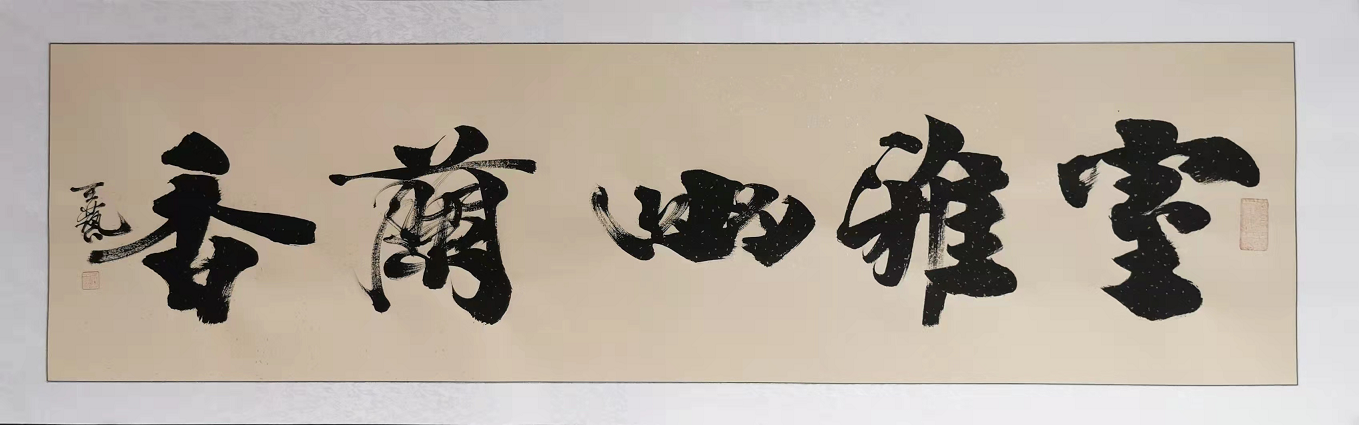 室雅幽蘭香